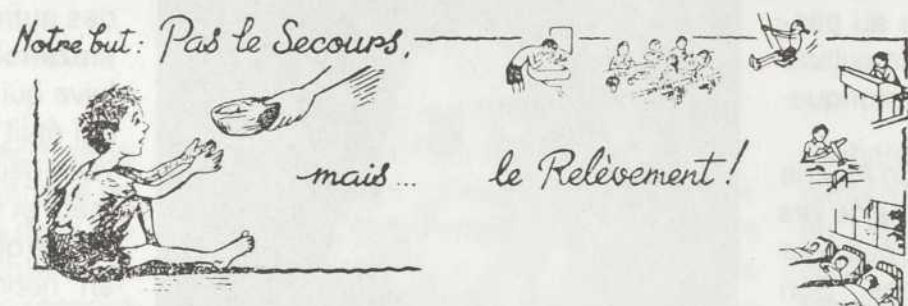 Notre but: Pas le Secours,
mais... le Relèvement!